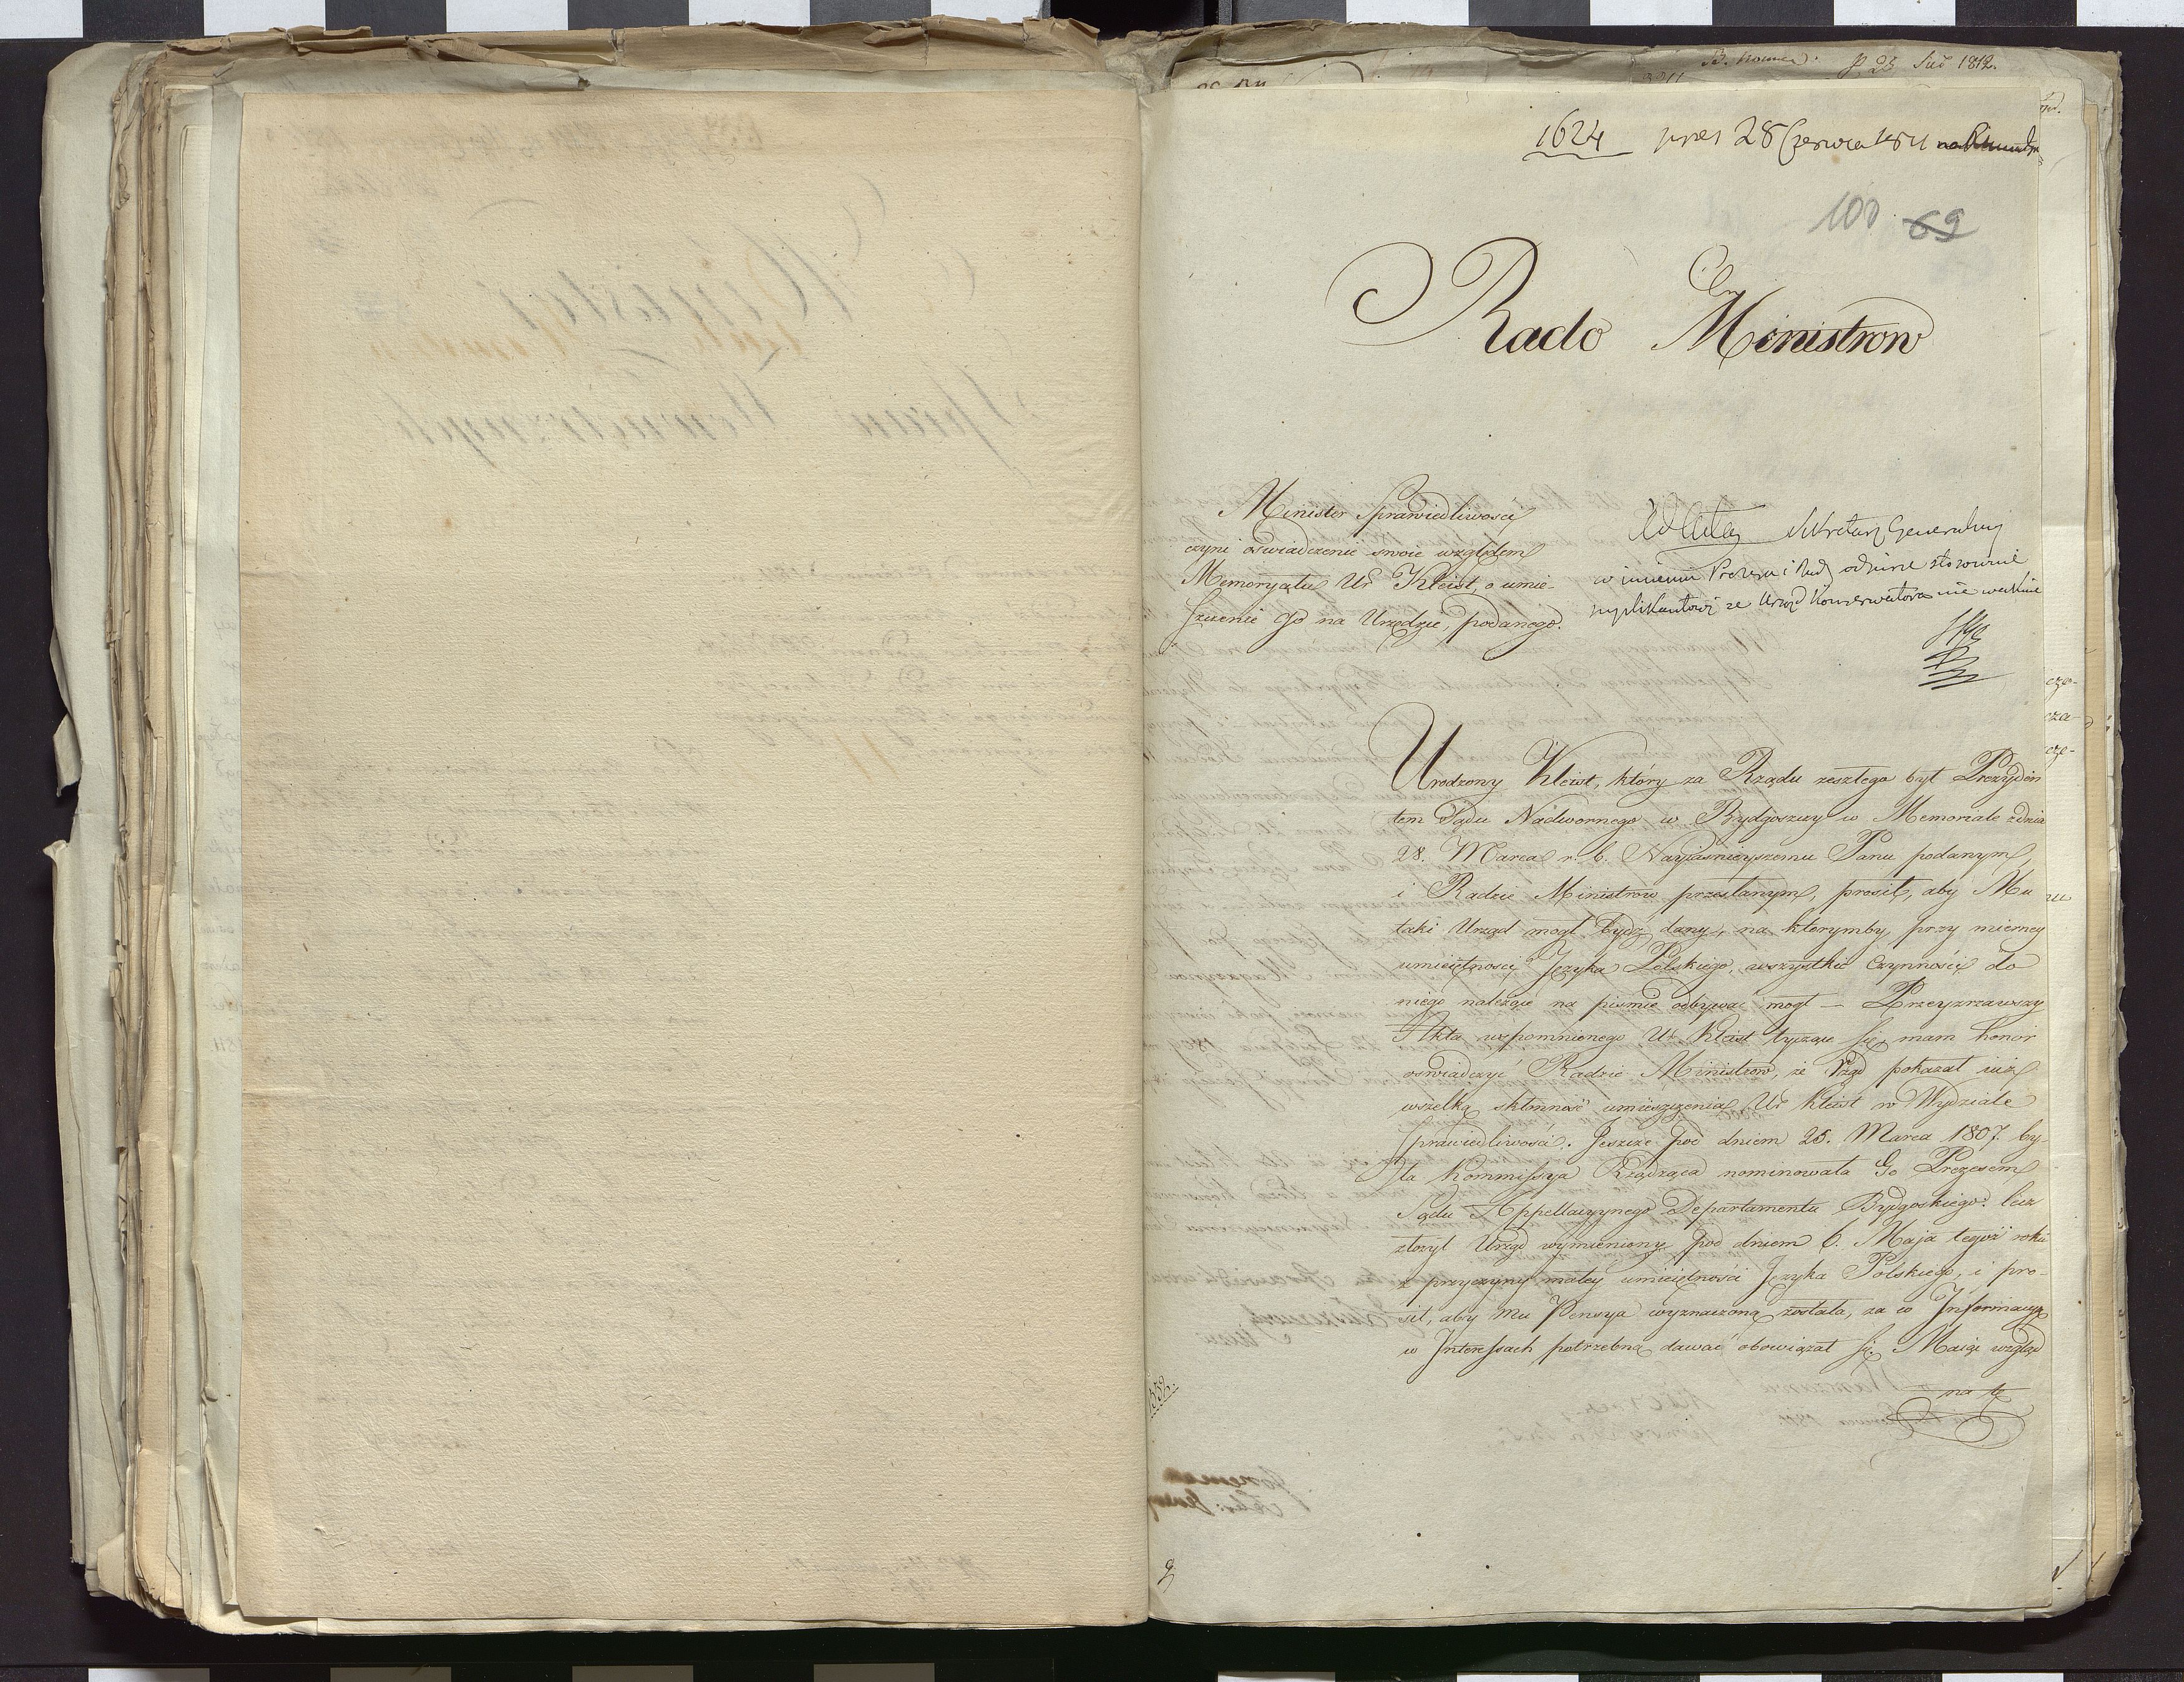 B. 23 Sud 1812.
1624 pres 28 Czerwca 1811
100 69
Do
Rady Ministrow
Minister Sprawiedliwości
czyni oswiadczenie swoie względem
Memoryału Ur Kleist, o umie-
szczenie Go na Urzędzie, podanego.
Ad Acta Sekretarz Generalny
w imieniu Prezesa i Rady odpisze stosownie
suplikantowi ze Urząd Konserwatora nie
Urodzony Kleist, który za Rządu zeszłego był Prezyden
tem Sądu Nadwornego w Bydgoszczy w Memoriale z dnia
28. Marca r. b. Nayjasnieyszemu Panu podanym,
i Radzie Ministrow przesłanym, prosił, aby Mu
taki Urząd mogł bydź dany, na ktorymby, przy mierney
umieiętnosci Języka Polskiego, wszystkie Czynności do
niego należące na pismie odbywać mogł — Przeyzrzawszy
Akta wspomnionego Ur Kleist tyczące się, mam honor
oswiadczyć Radzie Ministrow, że Rząd pokazał iuż
wszelką skłonność umieszczenia Ur Kleist w Wydziale
Sprawiedliwości. Jeszcze pod dniem 25. Marca 1807. by-
ła Kommissya Rządząca nominowała Go Prezesem
Sądu Appellacyynego Departamentu Bydgoskiego: lecz
złożył Urząd wymieniony pod dniem 6. Maja tegoż roku
z przyczyny małey umieiętności Języka Polskiego, i pro-
sił, aby mu Pensya wyznaczoną została, za co Informacyą
w Interessach potrzebną dawać obowiązał się. Maiąc wzgląd
na tę